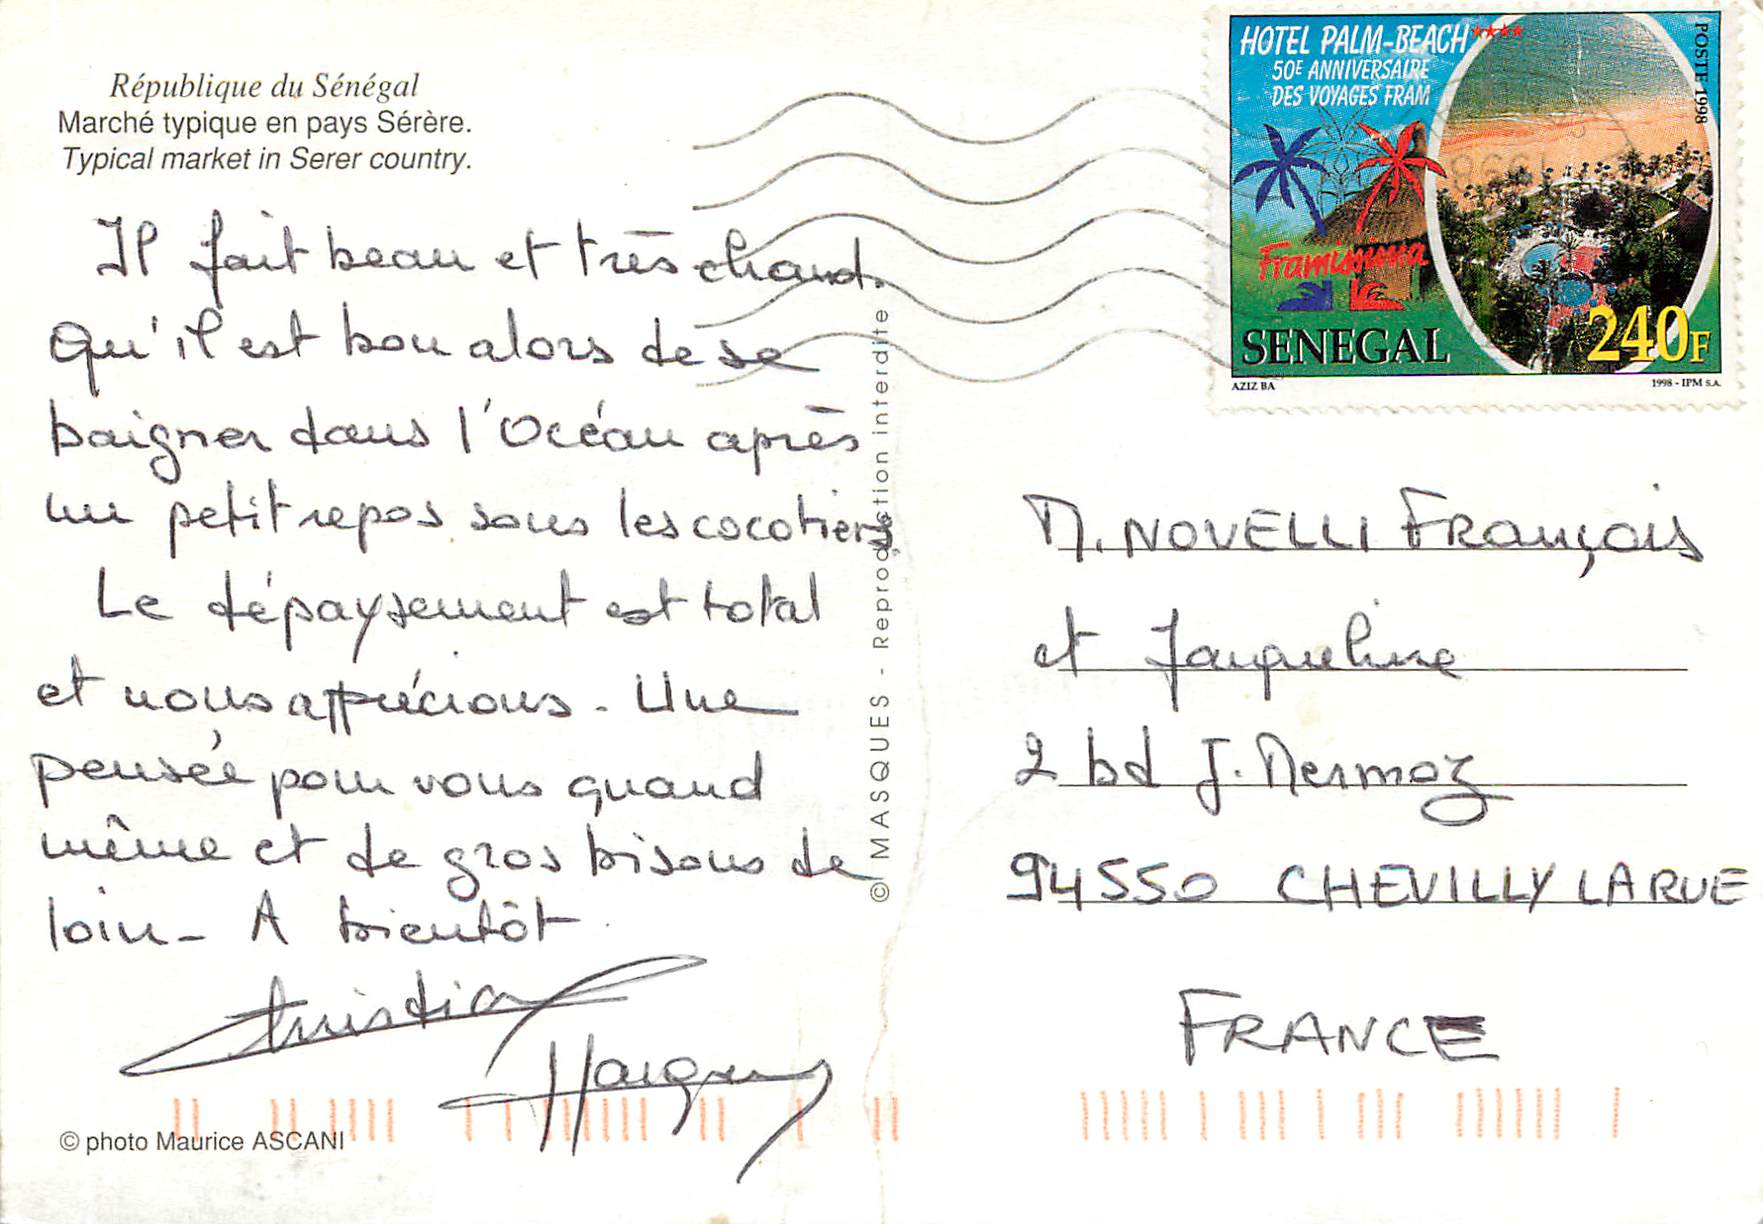 République du Sénégal
Marché typique en pays Sérère.
Typical market in Serer country.
Il fait beau et très chaud.
Qu'il est bon alors de se
baigner dans l'Océan après
un petit repos sous les cocotiers,
Le dépaysement est total
et nous apprécions. Une
pensée pour vous quand
même et de gros bisous de
loin - A bientôt
Christian
© photo Maurice ASCANI
© MASQUES - Reproduction interdite
HOTEL PALM-BEACH****
50E ANNIVERSAIRE
DES VOYAGES FRAM
POSTE 1998
Framissima
SENEGAL
240F
AZIZ BA
1998 - IPM S.A.
1998
M. NOVELLI François
et Jacqueline
2 bd J. Mermoz
94550 CHEVILLY LA RUE
FRANCE